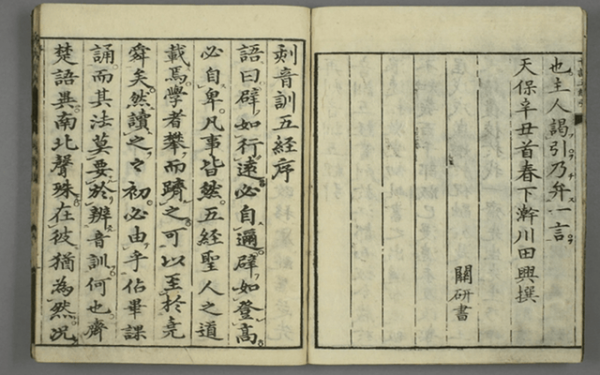 也主人謁引乃弁一言
天保辛丑首春下澣川田興撰
關研書
刻音訓五經序
語曰辟如行遠必自邇辟如登高
必自卑凡事皆然五經聖人之道
載焉學者攀而躋之可以至於堯
舜矣然讀之之初必由乎佔畢課
誦而其法莫要於辨音訓何也齊
楚語異南北聲殊在彼猶為然况